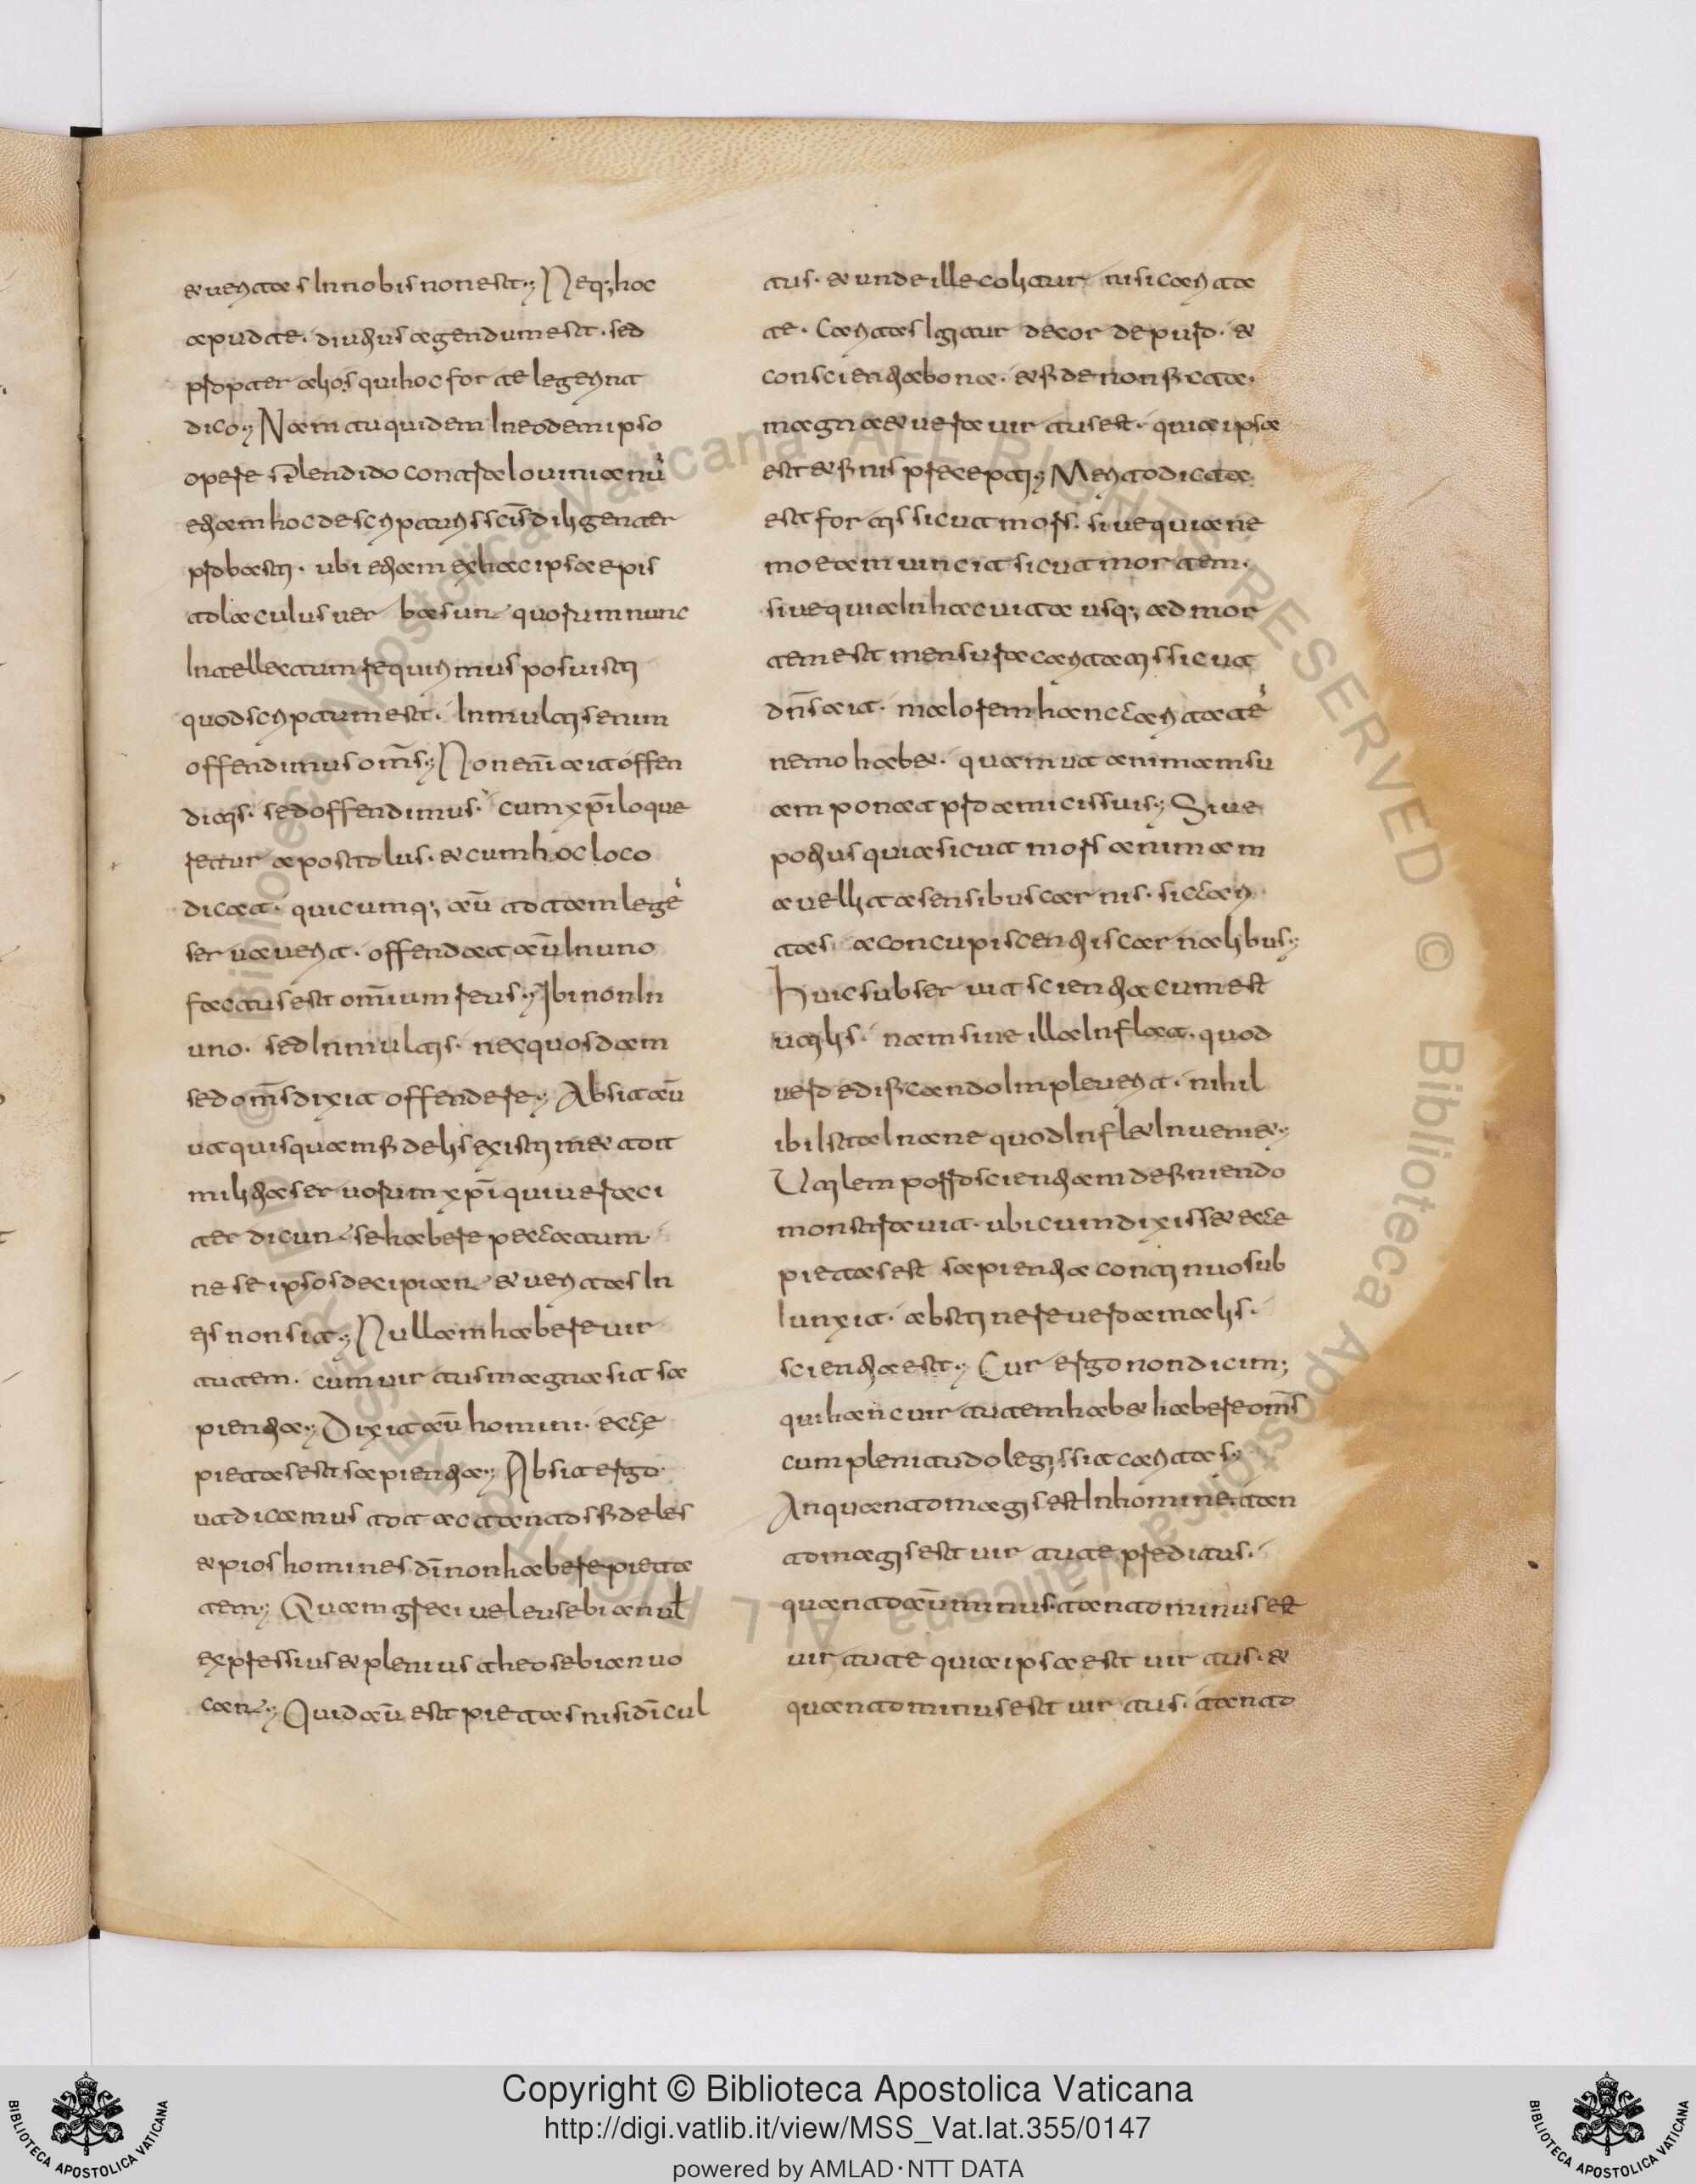 & ueritas In nobis non est; Neq; hoc
apud te. diutius agendum est. sed
propter alios qui hoc forte legerint
dico; Nam tu quidem In eodem ipso
opere splendido contra Iouinianū
etiam hoc de scripturis sc̄is diligenter
probasti. ubi etiam ex hac ipsa epis
tola cuius uerba sunt quorum nunc
Intellectum requirimus posuisti
quod scriptum est. In multis enim
offendimus om̄s; Non enī ait offen
ditis. sed offendimus. cum xp̄i loque
retur apostolus. & cum hoc loco
dicat. quicumq; aū totam legē
seruauerit. offendat aū In uno
factus est om̄ium reus; Ibi non In
uno. sed In multis. nec quosdam
sed om̄s dixit offendere; Absit aū
ut quisquam fidelis existimet tot
milia seruorum xp̄i qui ueraci
ter dicunt se habere peccatum.
ne se ipsos decipiant & ueritas In
eis non sit; Nullam habere uir
tutem. cum uirtus magna sit sa
pientia; Dixit aū homini. ecce
pietas est sapientia; Absit ergo
ut dicamus tot ac tantos fideles
& pios homines dī non habere pieta
tem; Quam greci uel eusebian ul
expressius & plenius theosebian uo
cant; Quid aū est pietas nisi dī cul
tus. & unde ille colitur nisi carita
te. Caritas Igitur de corde puro. &
conscientia bona. & fide non ficta.
magna & uera uirtus est. quia ipsa
est & finis precepti; Merito dicta
est fortis sicut mors. siue quia ne
mo eam uincit sicut mortem.
siue quia In hac uita usq; ad mor
tem est mensura caritatis sicut
dn̄s ait. maiorem hanc caritatē
nemo habet. quam ut animam su
am ponat pro amicis suis; Siue
potius quia sicut mors animam
auellit a sensibus carnis. sic cari
tas a concupiscentiis carnalibus;
Huic subseruit scientia cum est
utilis. nam sine illa Inflat. quod
uero edificando Impleuerit. nihil
ibi Ista Inane quod Inflet Inueniet;
Utilem porro scientiam definiendo
monstrauit. ubi cum dixisset ecce
pietas est sapientia continuo sub
Iunxit. abstinere uero a malis.
scientia est; Cur ergo non dicim;
qui hanc uirtutem habet habere om̄s
cum plenitudo legis sit caritas;
An quanto magis est In homine tan
to magis est uirtute preditus.
quanto aū minus. tanto minus est
uirtute quia ipsa est uirtus. &
quanto minus est uirtus. tanto
© Biblioteca Apostolica Vaticana ALL RIGHTS RESERVED © Biblioteca Apostolica Vaticana ALL RIGHTS RESERVED
Copyright © Biblioteca Apostolica Vaticana
http://digi.vatlib.it/view/MSS_Vat.lat.355/0147
powered by AMLAD·NTT DATA
BIBLIOTECA APOSTOLICA VATICANA
BIBLIOTECA APOSTOLICA VATICANA